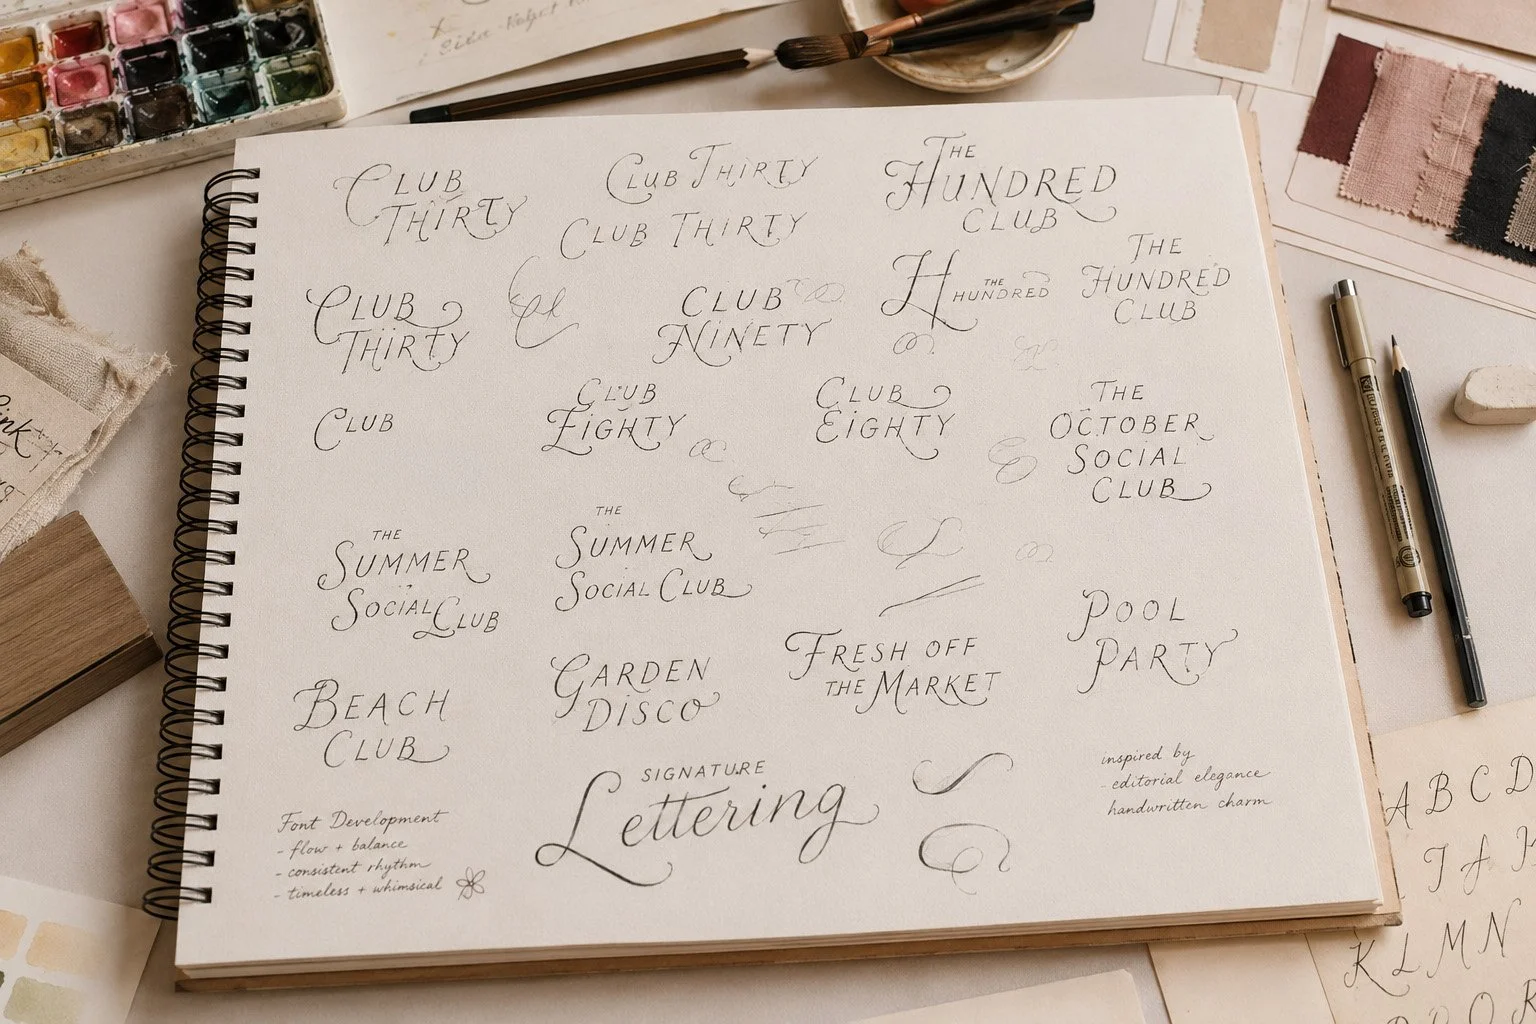 CLUB
THIRTY
CLUB THIRTY
CLUB THIRTY
THE
HUNDRED
CLUB
CLUB
THIRTY
CLUB
NINETY
H
THE
HUNDRED
THE
HUNDRED
CLUB
CLUB
CLUB
EIGHTY
CLUB
EIGHTY
THE
OCTOBER
SOCIAL
CLUB
THE
SUMMER
SOCIAL CLUB
THE
SUMMER
SOCIAL CLUB
BEACH
CLUB
GARDEN
DISCO
FRESH OFF
THE MARKET
POOL
PARTY
SIGNATURE
Lettering
Font Development
- flow + balance
- consistent rhythm
- timeless + whimsical
inspired by
- editorial elegance
handwritten charm
A B C D
K L M N